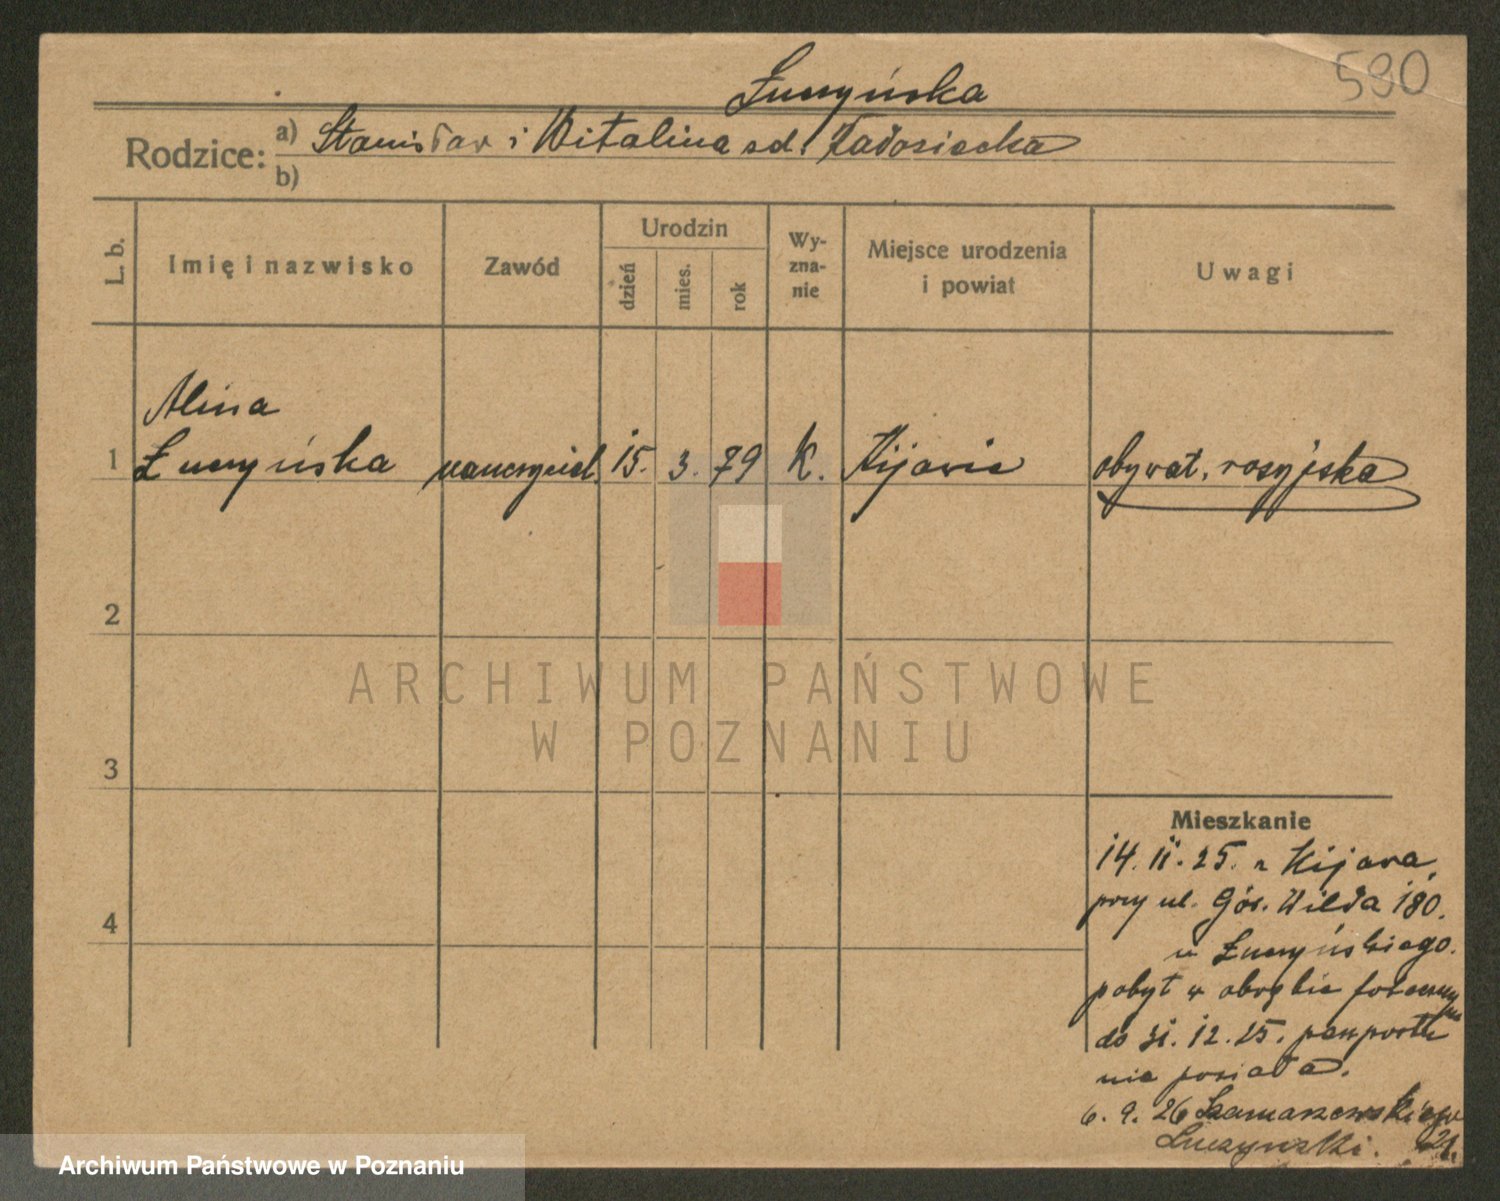 590
Łuczyńska
Rodzice:
a) Stanisław i Witalina z d.
b)
L. b.
Imię i nazwisko
Zawód
Urodzin
dzień
mies.
rok
Wy-
zna-
nie
Miejsce urodzenia
i powiat
Uwagi
Alina
1 Łuczyńska nauczyciel. 15. 3. 79 K. Kijowie obywat. rosyjska
2
3
4
ARCHIWUM PAŃSTWOWE
W POZNANIU
Mieszkanie
14. 11. 25. z Kijowa,
przy ul. Gór. Wilda 180.
u Łuczyńskiego.
pobyt w obrębie
do 31. 12. 25. paszportu
nie posiada.
6. 9. 26 Szamarzewskiego
Łuczyński. 21.
Archiwum Państwowe w Poznaniu